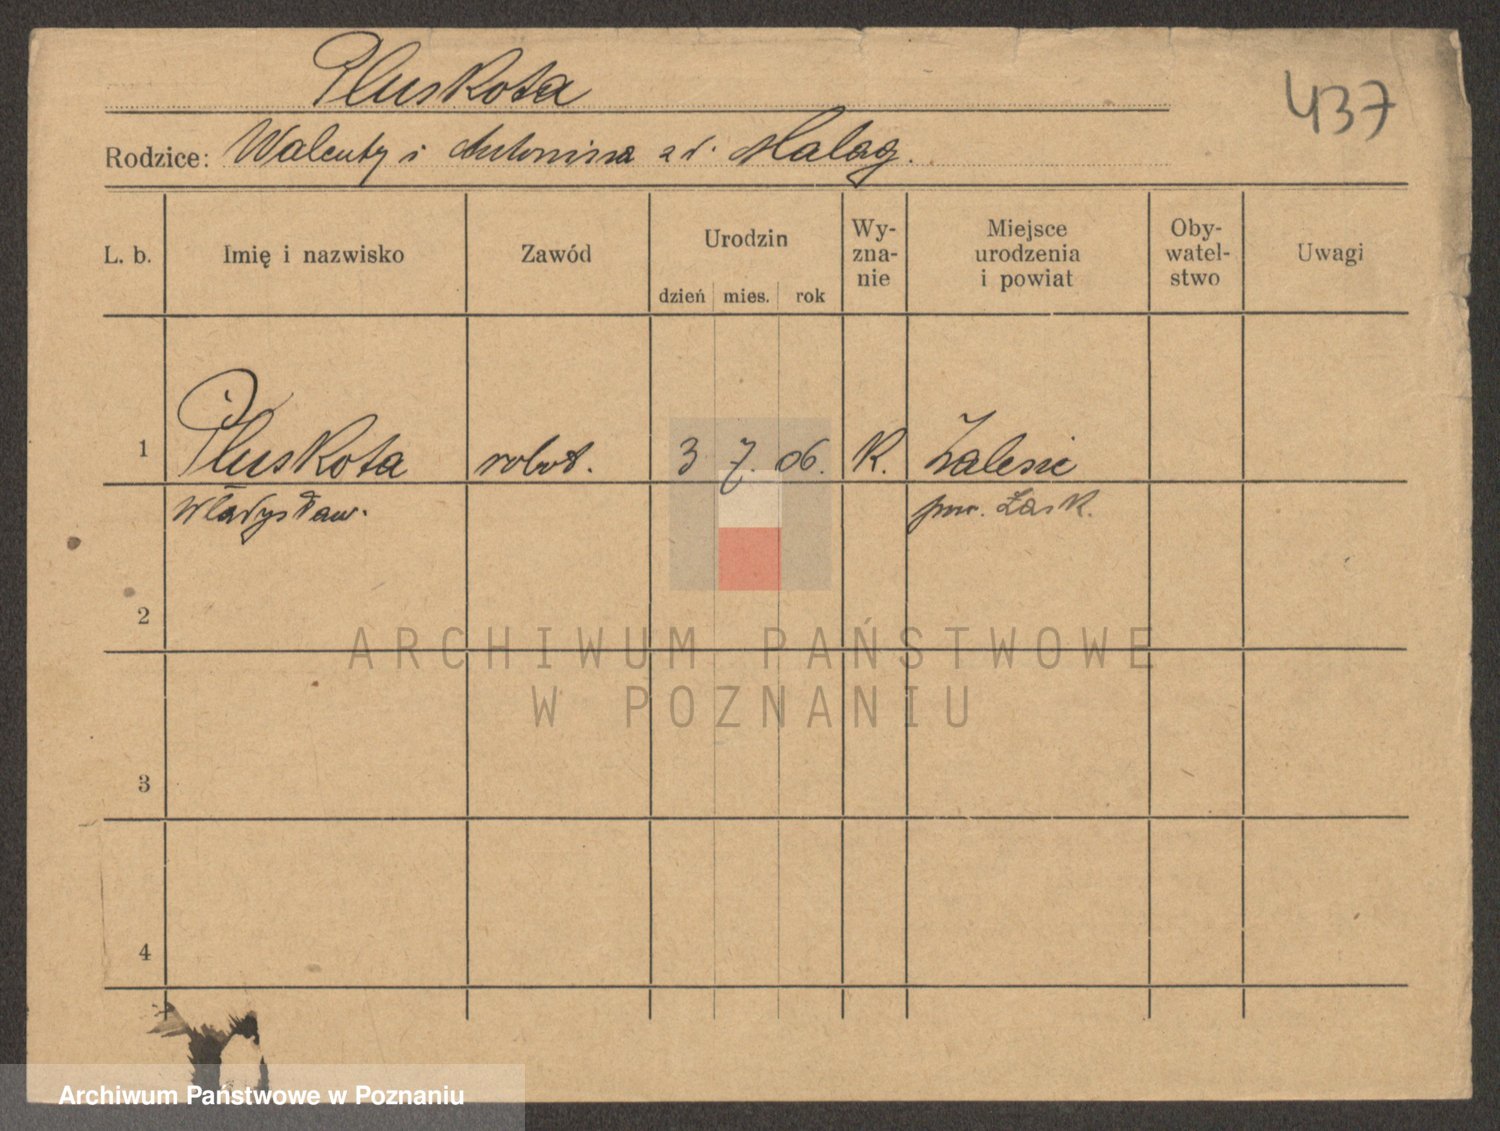 Pluskota
437
Rodzice: Walenty i Antonina z d. Malag.
L. b. Imię i nazwisko Zawód Urodzin dzień mies. rok Wy-zna-nie Miejsce urodzenia i powiat Oby-watel-stwo Uwagi
1 Pluskota robot. 3 7. 06. K. Zalesie
Władysław. pow. Łask.
2
ARCHIWUM PAŃSTWOWE
W POZNANIU
3
4
Archiwum Państwowe w Poznaniu